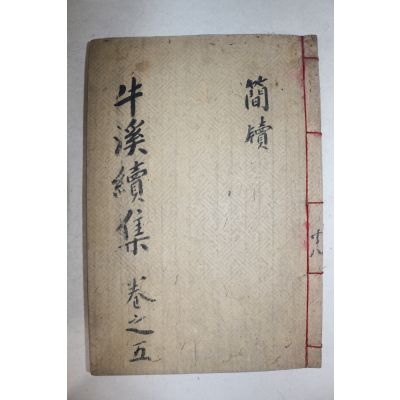 簡牘
牛溪續集 卷之五